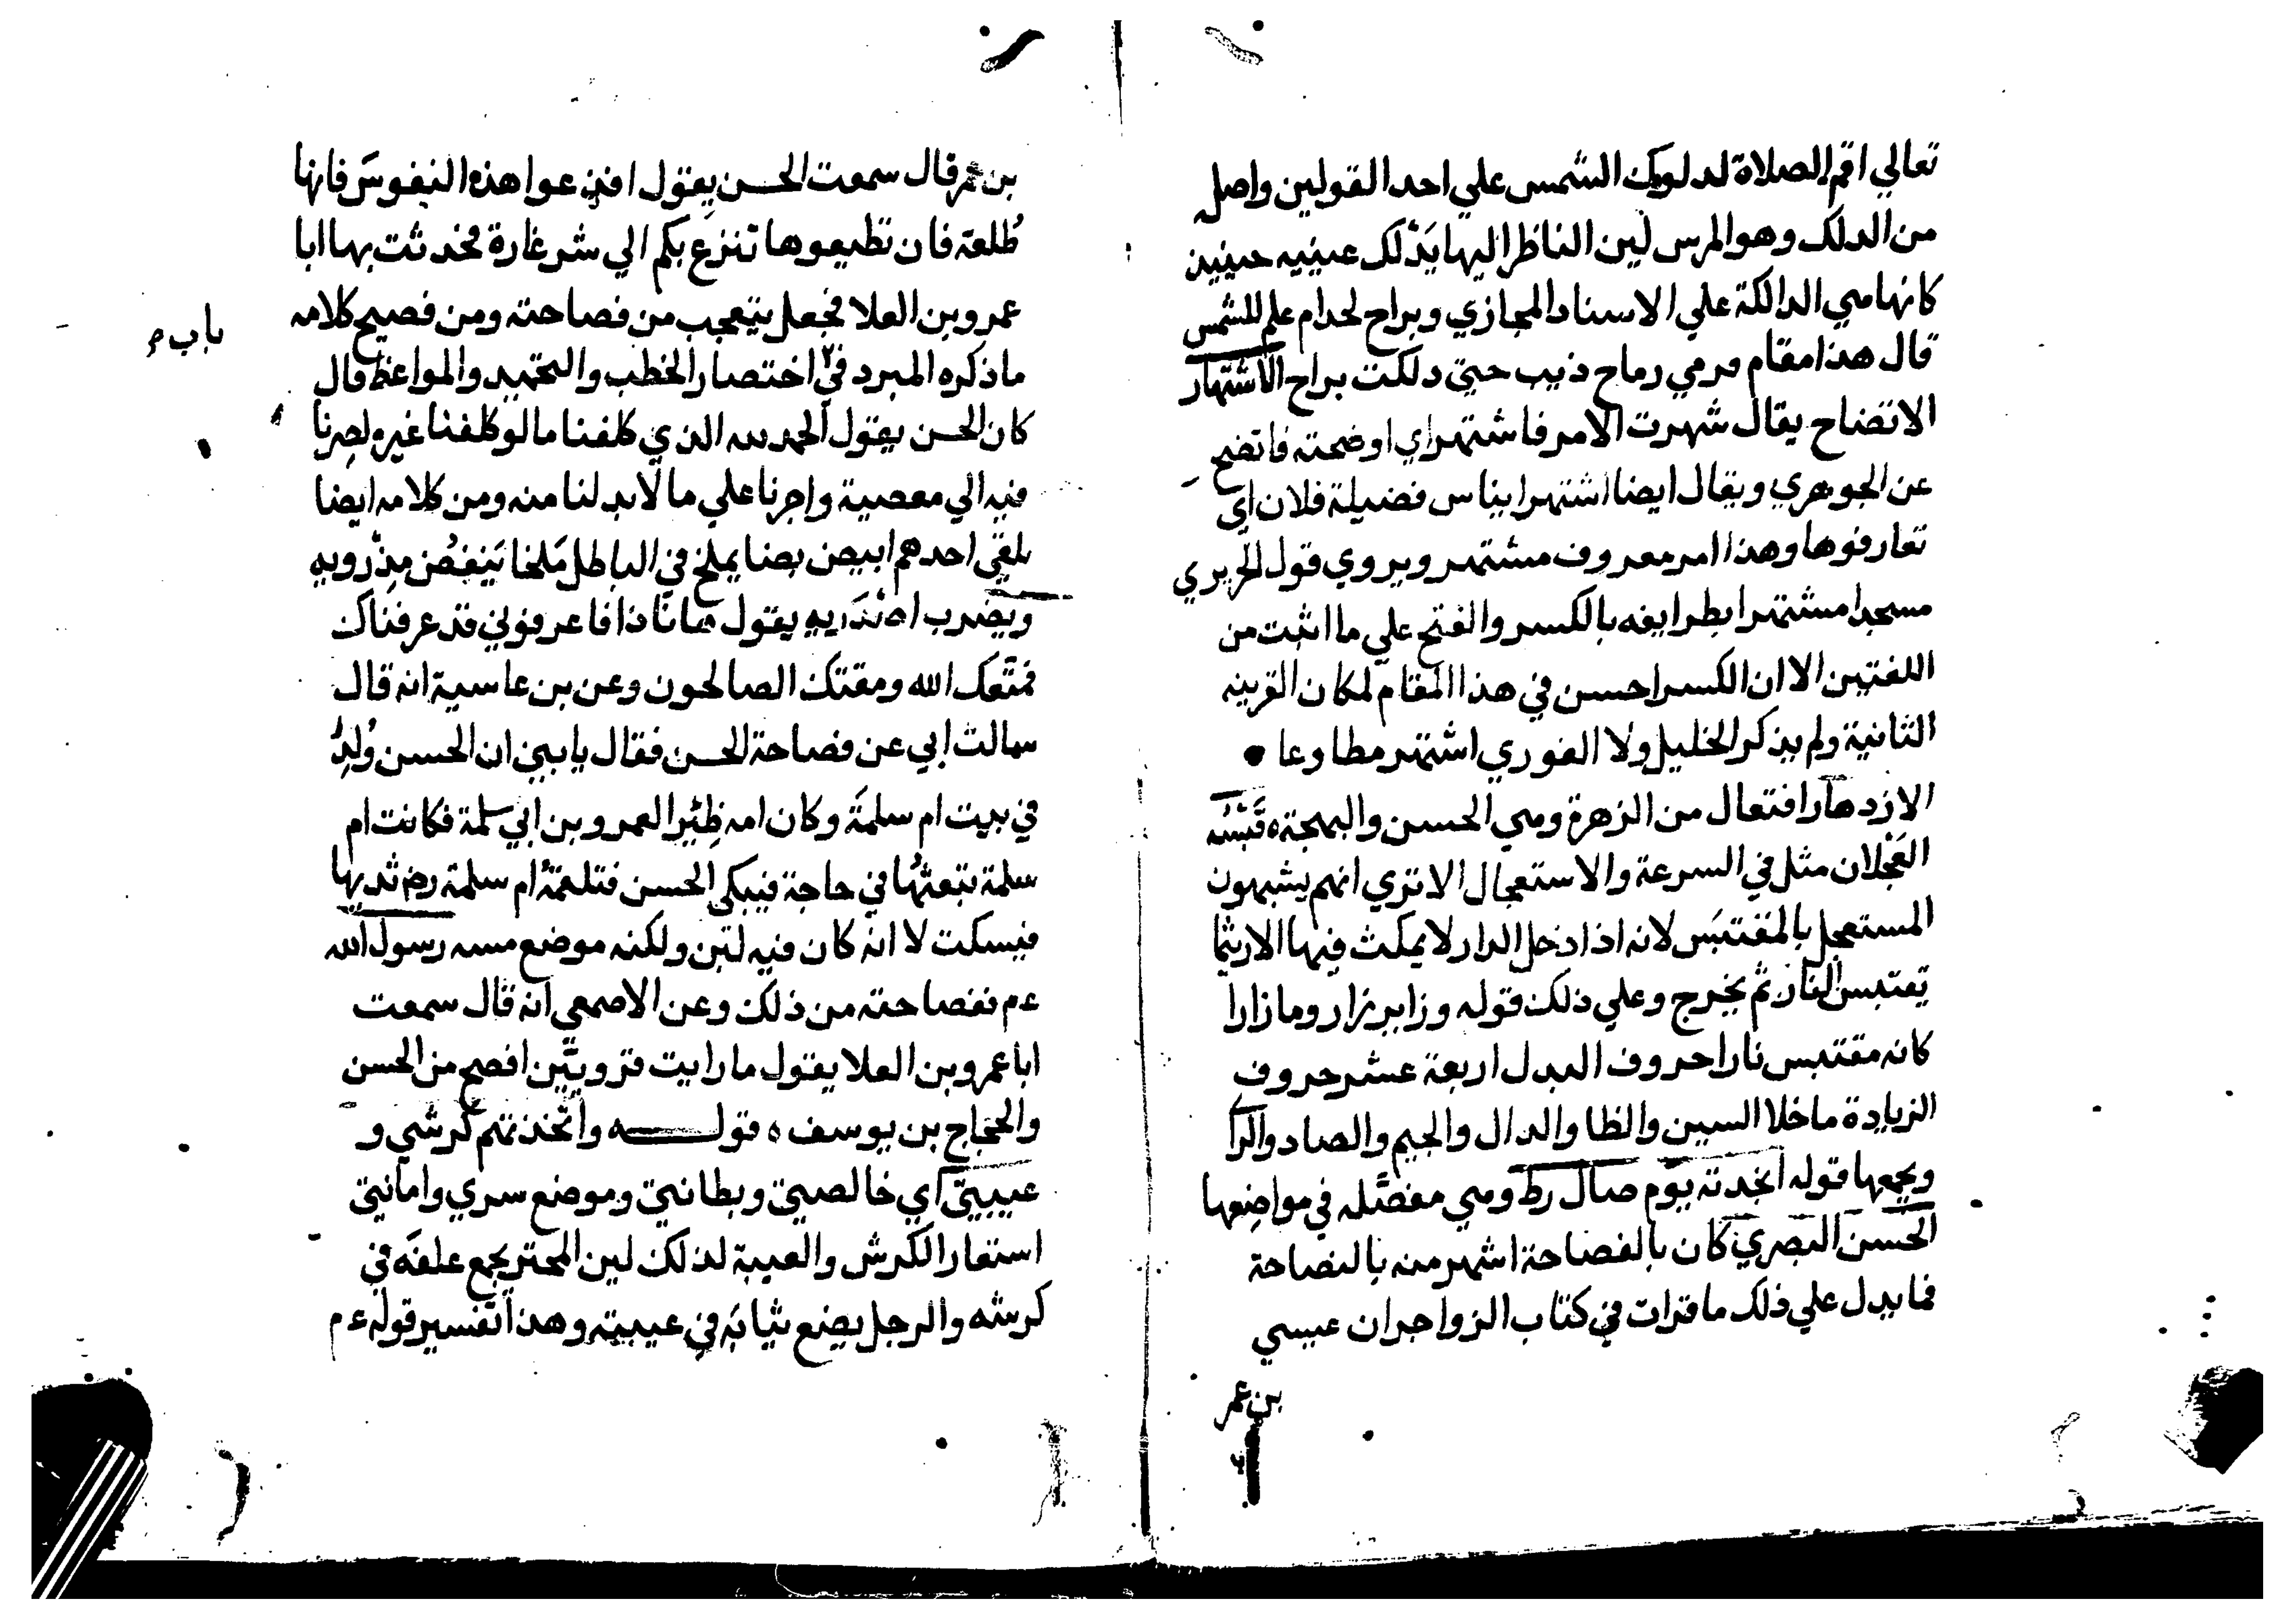 تعالي اقم الصلاة لدلوك الشمس علي احد القولين واصل
من الدلك وهو المرس لين الناظر اليها يَدْلك عينيه حينيين
كانها هي الدالكة علي الاسناد المجازي وبراح لحدام علم للشمس
قال هذا مقام قدمي رماح ذبب حتي دلكت براح الاشتهار
الاتضاح يقال شهرت الامر فاشتهر اي اوضحته فاتضح
عن الجوهري ويقال ايضا اشتهر ايناس فضيلة فلان اي
تعارفوها وهذا امر معروف مشتهر ويروي قول الحريري
مسجدا مشتهرا بطرايفه بالكسر والفتح علي ما اثبت من
اللغتين الا ان الكسر احسن في هذا المقام لمكان القرينه
الثانية ولم يذكر الخليل ولا الغوري اشتهر مطاوعا
الازدهار افتعال من الزهرة وهي الحسن والبهجة ه قَبْسُه
العَجْلان مثل في السرعة والاستعجال الا تري انهم يشبهون
المستعجل بالمقتبَس لانه اذا دخل الدار لا يمكث فيها الا ريثما
يقتبس النار ثم يخرج وعلي ذلك قوله وزاير زار وما زارا
كانه مقتبس نارا حروف البدل اربعة عشر حروف
الزيادة ما خلا السين والظا والدال والجيم والصاد والرا
ويجمعها قوله انجدته يوم صال زط وهي مفصّله في مواضِعها
الحسن البصري كان بالفصاحة اشهر منه بالنصاحة
فما يدل علي ذلك ما قرات في كتاب الزواجر ان عيسي
بن عمر
بن عمر قال سمعت الحسن يقول اقدعوا هذه النفوسَ فانها
طُلعة فان تطيعوها تنزع بكم الي شر غارة فحدثت بها ابا
عمرو بن العلا فجعل يتعجب من فصاحته ومن فصيح كلامه
باب م
ما ذكره المبرد في اختصار الخطب والتحميد والمواعظ قال
كان الحسن يقول الحمد لله الذي كلفنا ما لو كلفنا غيره لصرنا
فيه الي معصية واجرنا علي ما لا بد لنا منه ومن كلامه ايضا
يلقي احدهم ابيض بضا يملخ في الباطل مَلخا يَنفُض مِذْرويه
ويضرب اصْدَريه يقول ها نا ذا فاعرفوني قد عرفناك
فمقتك الله ومقتك الصالحون وعن بن عاسية انه قال
سالت ابي عن فصاحة الحسن فقال يا بني ان الحسن وُلِدَ
في بيت ام سلمَة وكان امه ظِئرا لعمرو بن ابي سلمة فكانت ام
سلمة تبعثها في حاجة فيبكي الحسن فتلقمه ام سلمة رضه ثديها
فيسكت لا انه كان فيه لبن ولكنه موضع مسه رسول الله
ءم ففصاحته من ذلك وعن الاصمعي انه قال سمعت
ابا عمرو بن العلا يقول ما رايت قرويّين افصح من الحسن
والحجاج بن يوسف ه قولـــه واتخذتهم كرشي و
عيبتي اي خالصتي وبطانتي وموضع سري وامانتي
استعار الكرش والعيبة لذلك لين المجتر يجمع علفَه في
كرشه والرجل يضع ثيابَه في عيبته وهذا تفسير قوله ءم